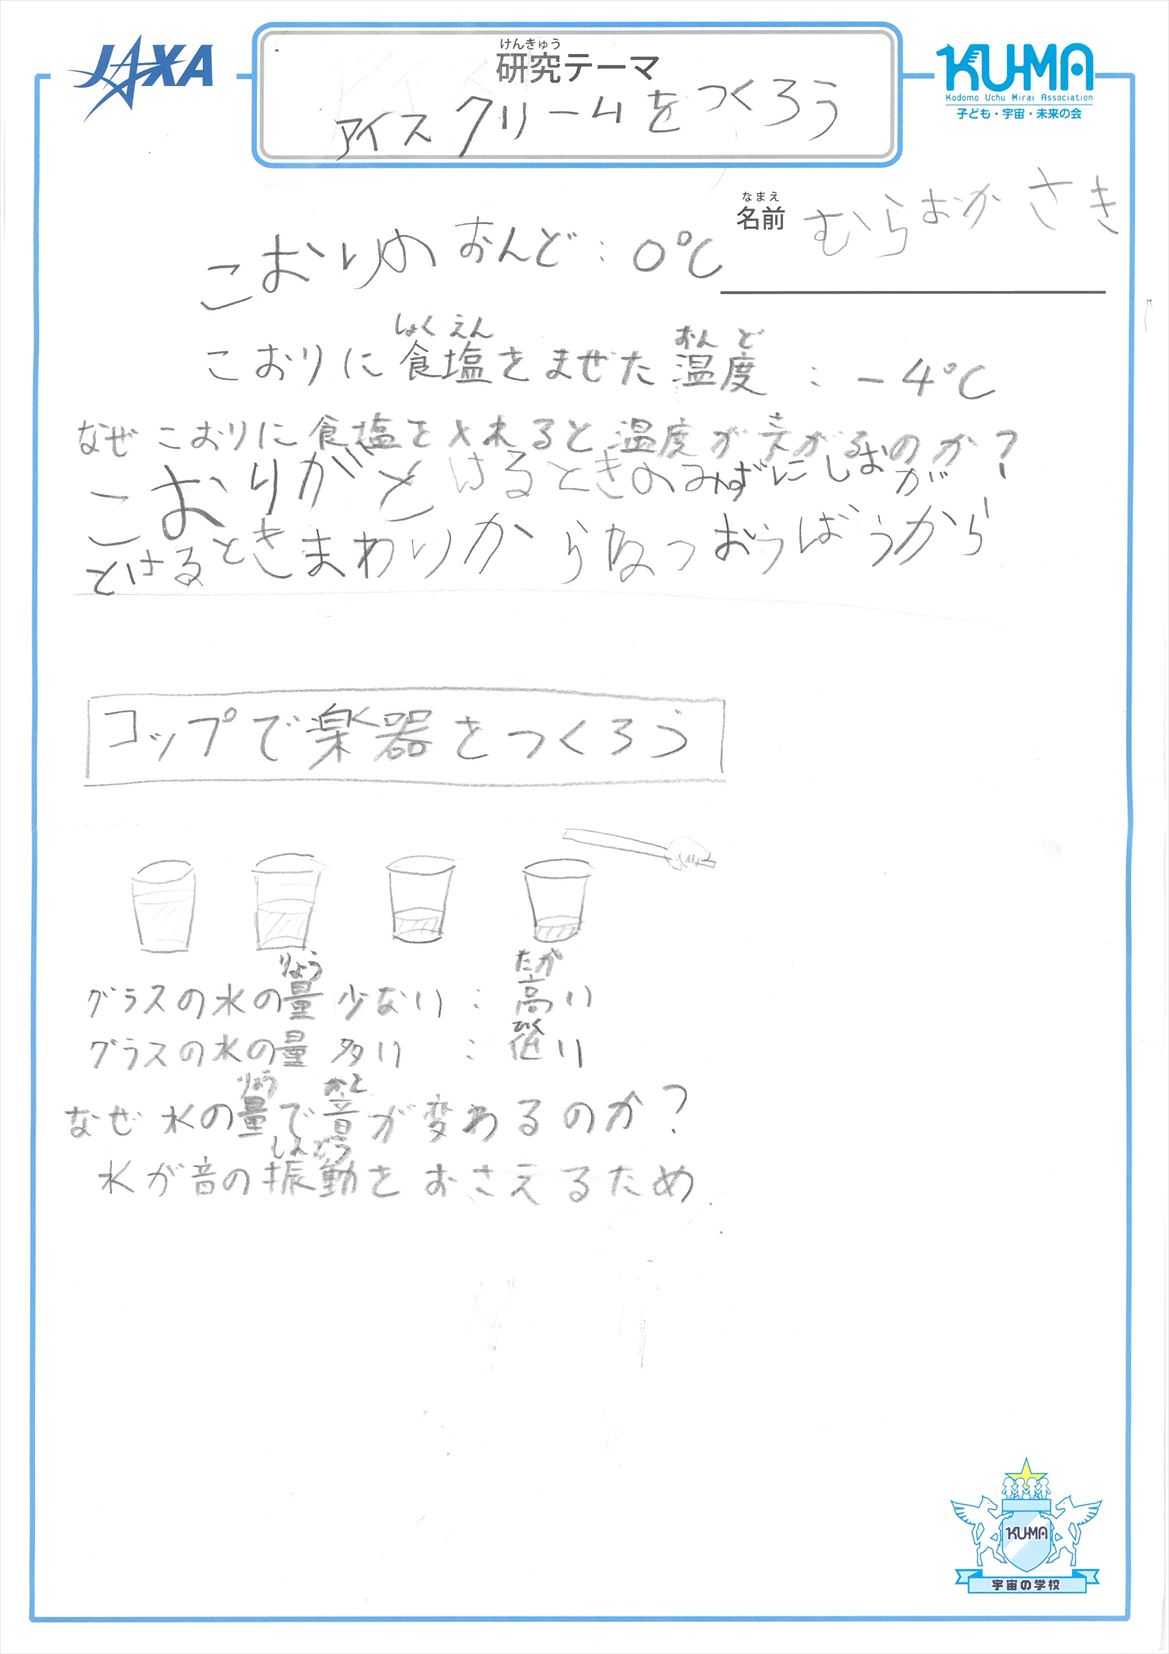 JAXA
けんきゅう
研究テーマ
アイスクリームをつくろう
KU-MA
Kodomo Uchu Mirai Association
子ども・宇宙・未来の会
なまえ
名前 むらおか さき
こおりの おんど : 0℃
しょくえん おんど
こおりに 食塩をまぜた 温度 : -4℃
なぜ こおりに 食塩を入れると 温度が下がるのか?
こおりがとけるときのみずにしおが
とけるときまわりからねつおうばうから
コップで楽器をつくろう
りょう たか
グラスの水の量 少ない : 高い
ひく
グラスの水の量 多い : 低い
りょう おと
なぜ 水の量で音が変わるのか?
しんどう
水が音の振動をおさえるため
KU-MA
宇宙の学校